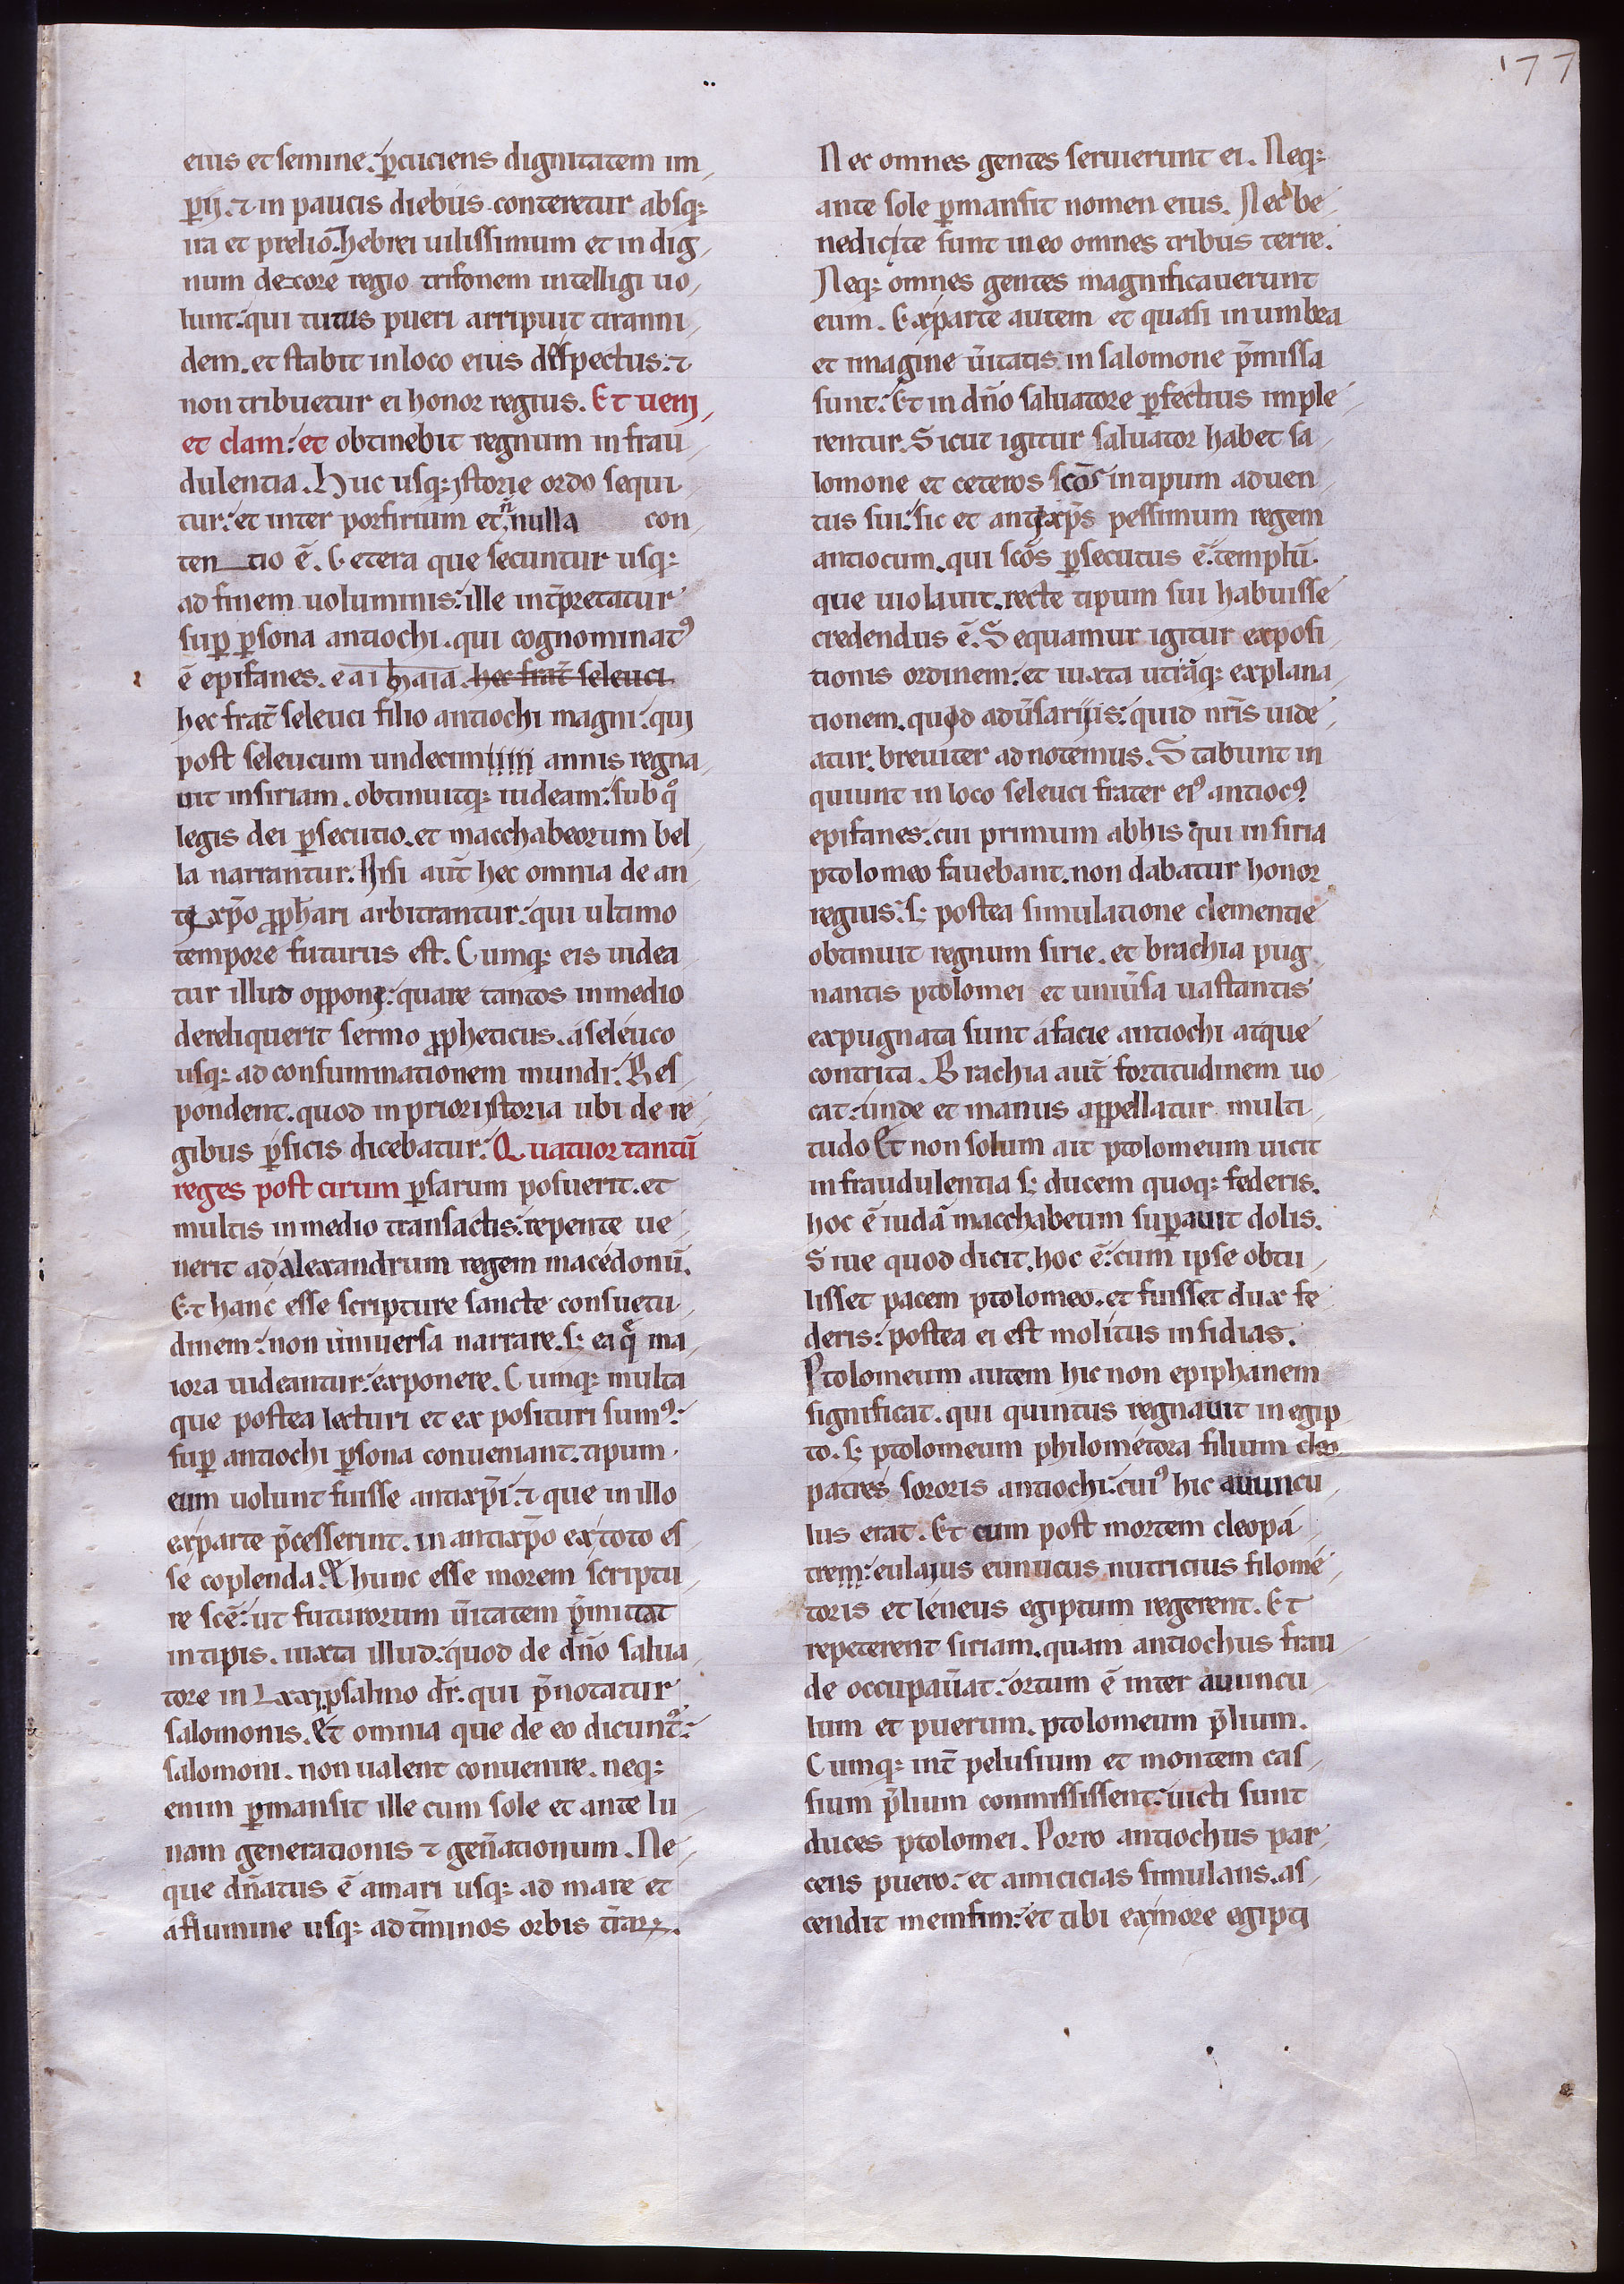 177
eius et semine. ꝑcuciens dignitatem im
ꝑij. ⁊ in paucis diebus conteretur absq;
ira et prelio. hebrei uilissimum et indig
num decore regio trifonem intelligi uo
lunt. qui tutus pueri arripuit tiranni
dem. et stabit in loco eius despectus. ⁊
non tribuetur ei honor regius. Et uenj
et clam. et obtinebit regnum in frau
dulentia. Huc usq; ystorie ordo sequi
tur. et inter porfirium et n̄ nulla con
ten tio ē. Cetera que secuntur usq;
ad finem uoluminis. ille int̄pretatur
suꝑ ꝑsona antiochi. qui cognominatꝰ
ē epifanes. hec frat̄ seleuci
hec frat̄ seleuci filio antiochi magni. quj
post seleucum undecim annis regna
uit in siriam. obtinuitq; iudeam. sub qͦ
legis dei ꝑsecutio. et macchabeorum bel
la narrantur. Nisi aut̄ hec omnia de an
tixp̄o ꝓphari arbitrantur. qui ultimo
tempore futurus est. Cumq; eis uidea
tur illud opponj. quare tantos in medio
dereliquerit sermo ꝓpheticus. a seleuco
usq; ad consummationem mundi. Res
pondent. quod in priori ystoria ubi de re
gibus ꝑsicis dicebatur. Quatuor tantū
reges post cirum ꝑsarum posuerit. et
multis in medio transactis. repente ue
nerit ad alexandrum regem macedonū.
Et hanc esse scripture sancte consuetu
dinem. non uniuersa narrare. s; ea q̄ ma
iora uideantur. exponere. Cumq; multa
que postea lecturi et exposituri sumꝰ.
suꝑ antiochi ꝑsona conueniant. tipum
eum uolunt fuisse antixp̄i. ⁊ que in illo
ex parte p̄cesserint. in antixp̄o ex toto es
se coplenda. Et hunc esse morem scriptu
re scē. ut futurorum ūitatem p̄mittat
in tipis. iuxta illud. quod de dn̄o salua
tore in Lxxj psalmo dr̄. qui p̄notatur
salomonis. et omnia que de eo dicunt᷑.
salomoni. non ualent conuenire. neq;
enim ꝑmansit ille cum sole et ante lu
nam generationis ⁊ gen̄ationum. Ne
que dn̄atus ē amari usq; ad mare et
a flumine usq; ad t̄minos orbis t̄raꝝ.
Nec omnes gentes seruierunt ei. Neq;
ante sole ꝑmansit nomen eius. Nec be
nedicite sunt in eo omnes tribus terre.
Neq; omnes gentes magnificauerunt
eum. Ex parte autem et quasi in umbra
et imagine ūitatis in salomone p̄missa
sunt. Et in dn̄o saluatore ꝑfectius imple
rentur. Sicut igitur saluator habet sa
lomone et ceteros scōs in tipum aduen
tus sui. sic et antixp̄s pessimum regem
antiocum. qui scōs ꝑsecutus ē. templū
que uiolauit. recte tipum sui habuisse
credendus ē. Sequamur igitur exposi
tionis ordinem. et iuxta utrāq; explana
tionem. quid adūsarijs. quid nr̄is uide
atur. breuiter adnotemus. Stabunt in
quiunt in loco seleuci frater eiꝰ antiocꝰ
epifanes. cui primum ab his qui in siria
ptolomeo fauebant. non dabatur honor
regius. s; postea simulatione clementie
obtinuit regnum sirie. et brachia pug
nantis ptolomei et uniūsa uastantis
expugnata sunt a facie antiochi atque
contrita. Brachia aut̄ fortitudinem uo
cat. unde et manus appellatur multi
tudo Et non solum ait ptolomeum uicit
in fraudulentia s; ducem quoq; federis.
hoc ē iudā macchabeum suꝑauit dolis.
Siue quod dicit. hoc ē. cum ipse obtu
lisset pacem ptolomeo. et fuisset dux fe
deris. postea ei est molitus insidias.
Ptolomeum autem hic non epiphanem
significat. qui quintus regnauit in egip
to. s; ptolomeum philometora filium cleo
patres sororis antiochi. cuiꝰ hic auuncu
lus erat. Et cum post mortem cleopa
trem. eulaius eunucus nutricius filome
toris et leneus egiptum regerent. Et
repeterent siriam. quam antiochus frau
de occupaūat. ortum ē inter auuncu
lum et puerum. ptolomeum p̄lium.
Cumq; int̄ pelusium et montem cas
sium p̄lium commississent. uicti sunt
duces ptolomei. Porro antiochus par
cens puero. et amicicias simulans. as
cendit memfim. et tibi ex more egipti